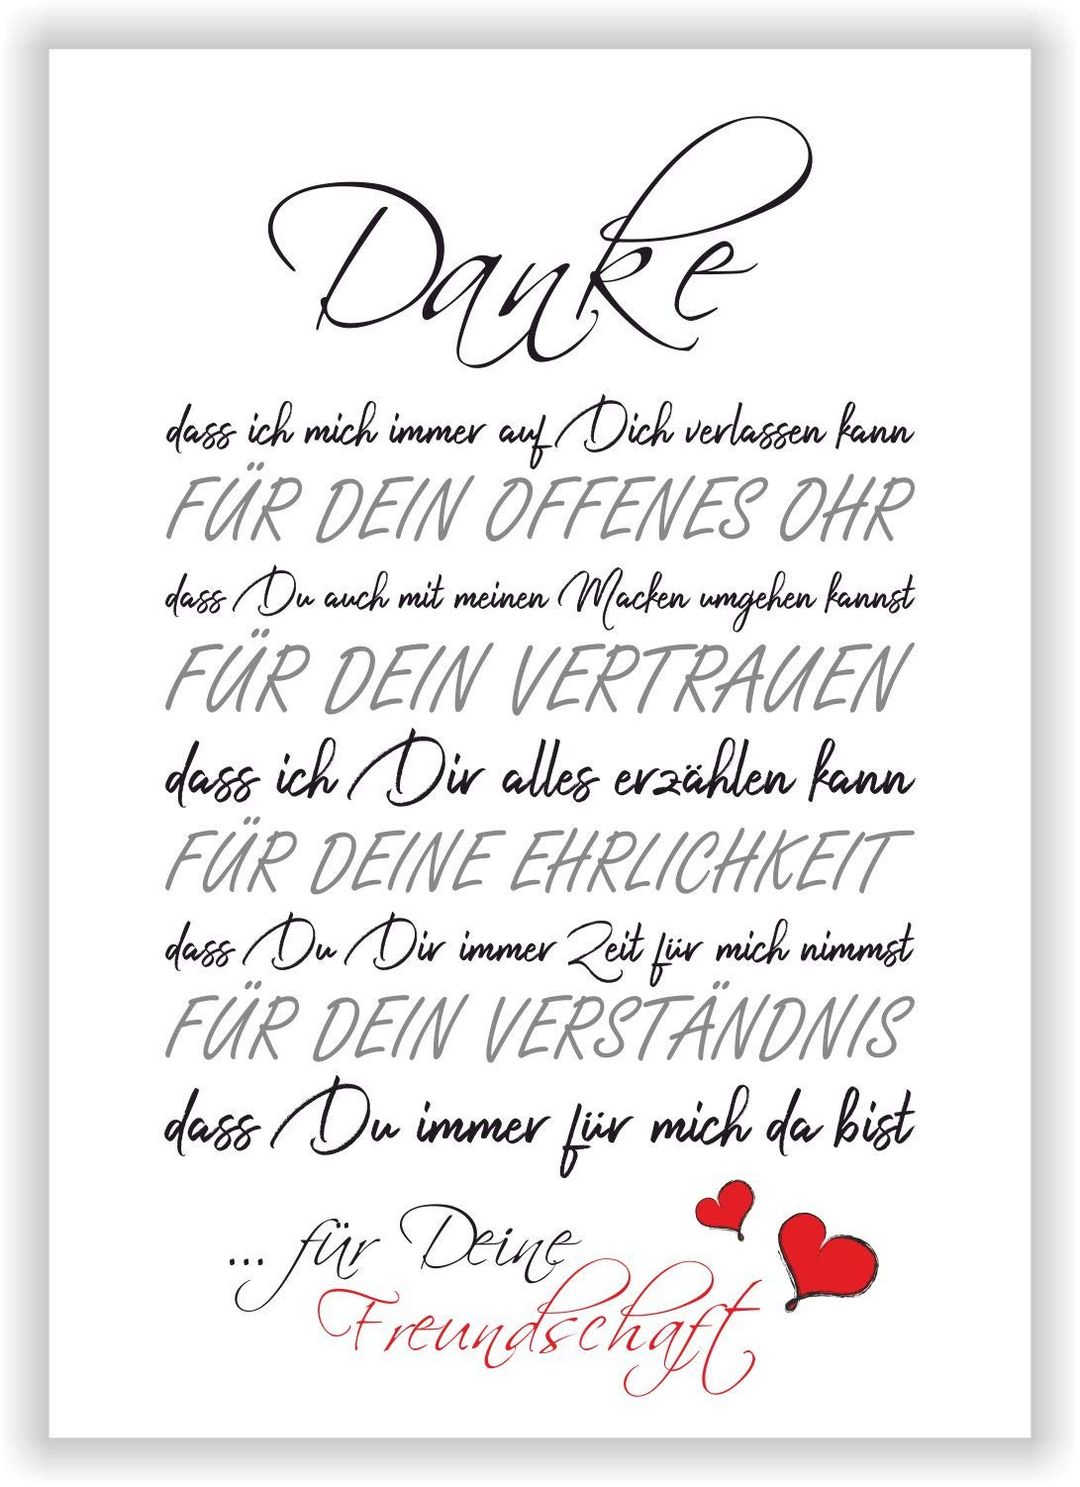 Danke
dass ich mich immer auf Dich verlassen kann
FÜR DEIN OFFENES OHR
dass Du auch mit meinen Macken umgehen kannst
FÜR DEIN VERTRAUEN
dass ich Dir alles erzählen kann
FÜR DEINE EHRLICHKEIT
dass Du Dir immer Zeit für mich nimmst
FÜR DEIN VERSTÄNDNIS
dass Du immer für mich da bist
... für Deine
Freundschaft